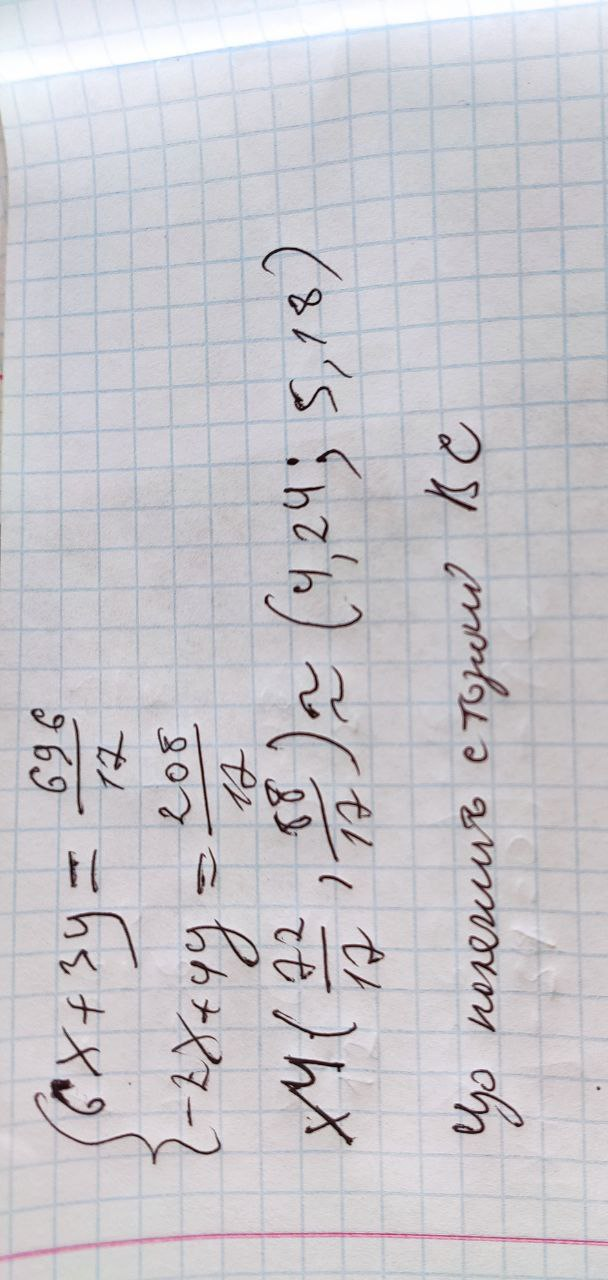 {6x+3y = 696/17
{-2x+4y = 208/17
xy(72/17, 88/17) ≈ (4,24; 5,18)
що належить стороні BC